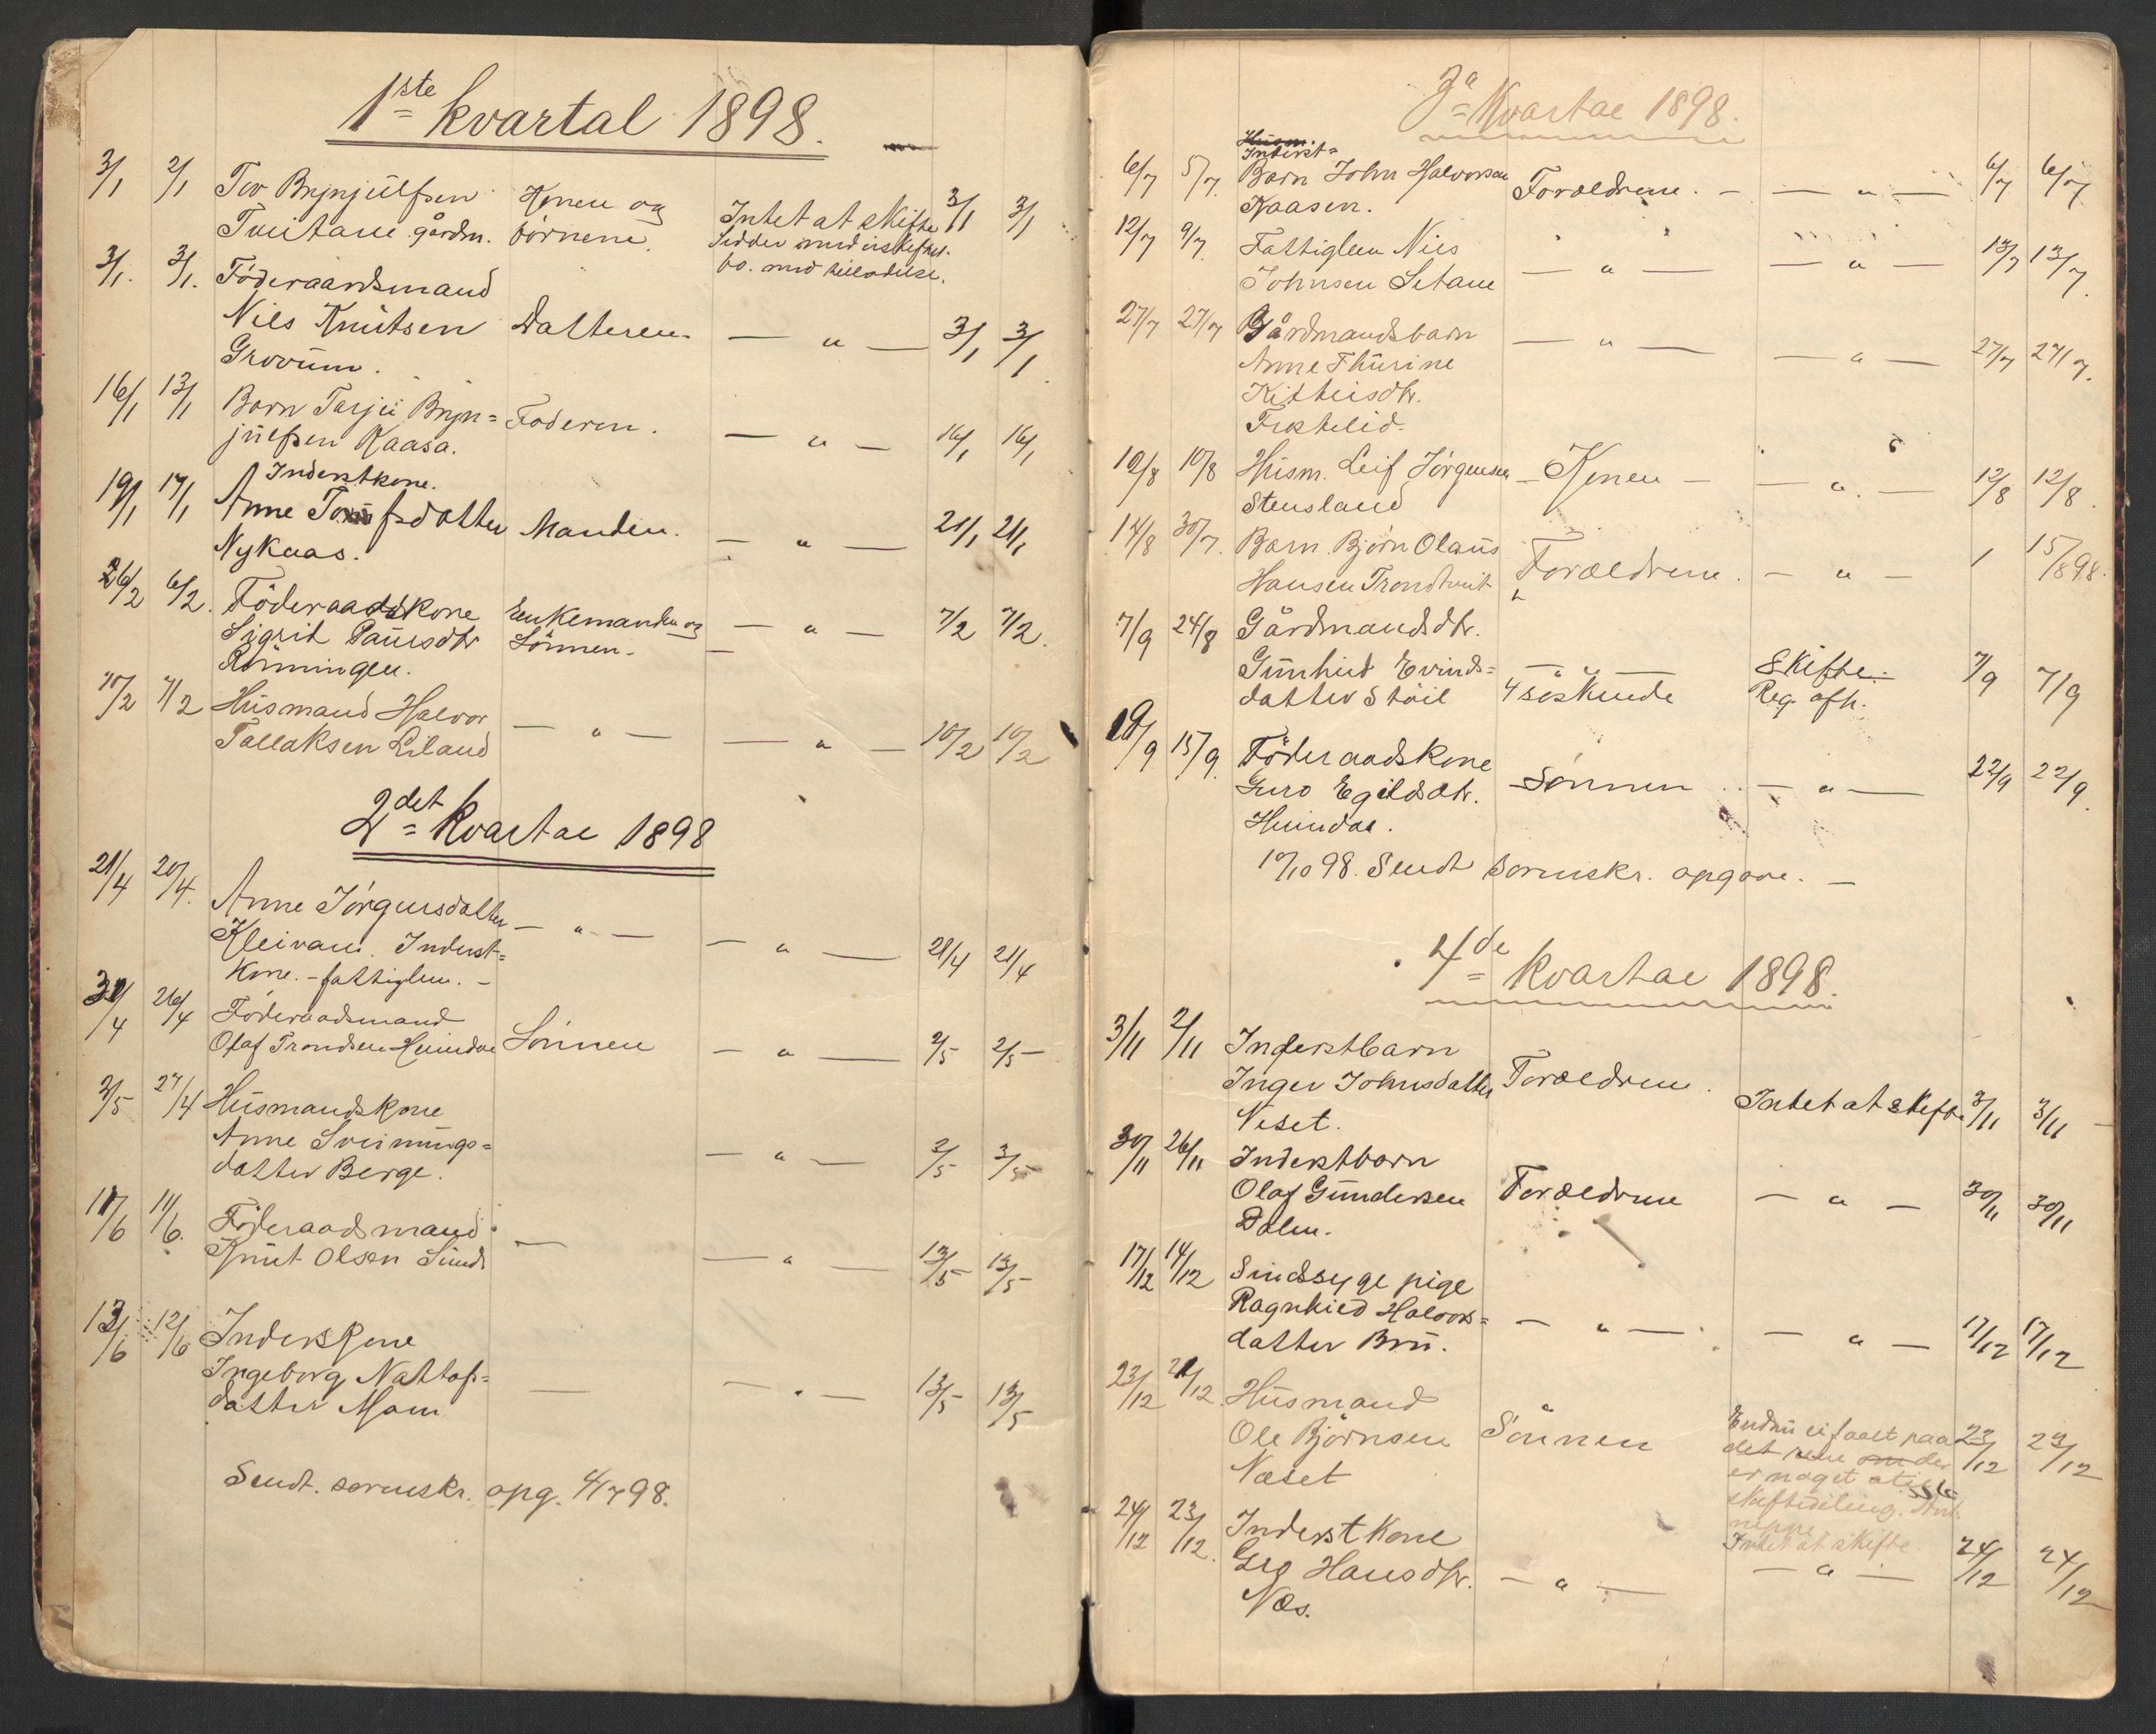 1ste kvartal 1898.
3/1 2/1 Tor Brynjulfsen Konen og
Tveitane gårdm. børnene. Intet at skifte 3/1 3/1
Sidder med uskiftet
bo. med
3/1. 3/1. Föderaadsmand
Nils Knutsen Datteren — " — 3/1 3/1
Grovum.
16/1 13/1 Barn Tarju Bryn= Faderen. — " — 16/1 16/1
julfsen Kaasa.
Inderstkone.
19/1 17/1 Anne datter Manden. — " — 21/1 21/1
Nykaas.
26/2 6/2. Föderaadskone Enkemanden og — " — 7/2 7/2.
Sigrid Paulsdtr Sönnen.
Rönningen.
10/2 7/2 Husmand Halvor — " — — " — 10/2 10/2
Tallaksen Liland
2det Kvartal 1898
21/4 20/4. Anne Jörgensdatter — " —
Kleivane. Inderst= — " — 21/4 21/4
Kone. - fattiglem. -
30/4 26/4 Föderaadsmand
Olaf Trondsen Huindal Sönnen — " — 2/5 2/5
3/5 27/4 Husmandskone
Anne Sveinungs= — " — 3/5 3/5
datter Berge.
11/6 11/6. Föderaadsmand —
Knut Olsen Sund — " — 13/5 13/5
13/6 12/6 Inderskone
Ingeborg Nattolfs= — — " — 13/5 13/5
datter Moen
Sendt. sorenskr. opg. 4/7 98.
3die Kvartal 1898.
Husm.
Inderst=
6/7 5/7. Barn John Halvorsen Forældrene. — — " — 6/7 6/7
Kaasen.
12/7 9/7. Fattiglem Nils
Johnsen Setane — " — — " — 13/7 13/7.
27/7 27/7 Gårdmandsbarn — " — — " — 27/7 27/7.
Anne Thurine
Kittilsdtr.
Fistelid.
10/8 10/8 Husm. Leif Jörgensen — Konen — — " — 12/8 12/8.
Stensland
14/8 30/7. Barn Björn Olaus
Hansen Trondtveit Forældrene. — " — 1 15/8 98.
7/9 24/8 Gårdmandsdtr.
Gunhild Evinds= — " — Skifte. 7/9 7/9
datter Støil 4 söskende Reg. afh.
19/9 15/9. Föderaadskone
Guro Egildsdtr. Sönnen — " — 22/9 22/9.
Huindal.
10/10 98. Sendt sorenskr. opgave. —
4de kvartal 1898.
3/11 2/11 Inderstbarn
Inger Johnsdatter Forældrene. Intet at skifte 3/11 3/11 —
Neset.
30/11 26/11 Inderstbarn
Olaf Gundersen Forældrene — " — 30/11 30/11
Dalen.
17/12 14/12 Sindssyge pige
Ragnhild Halvors= — " — — " — 17/12 17/12
datter Bru.
23/12 21/12. Husmand
Ole Björnsen Sönnen Endnu ei faaet paa 23/12 23/12
Næset det rene om der
er noget at
skiftedeling.
neppe
24/12 23/12. Inderstkone Intet at skifte. 24/12 24/12
Gro Hansdtr. — " — — " —
Næs.